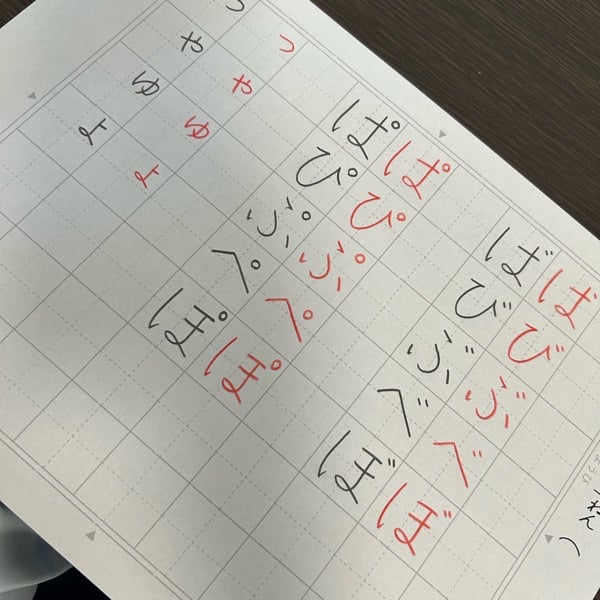 ばびぶべぼ
ばびぶべぼ
ぱぴぷぺぽ
ぱぴぷぺぽ
っゃゅょ
っゃゅょ